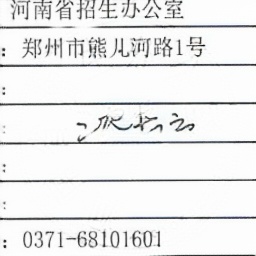 河南省招生办公室
：郑州市熊儿河路1号
：
：
：
：
：0371-68101601